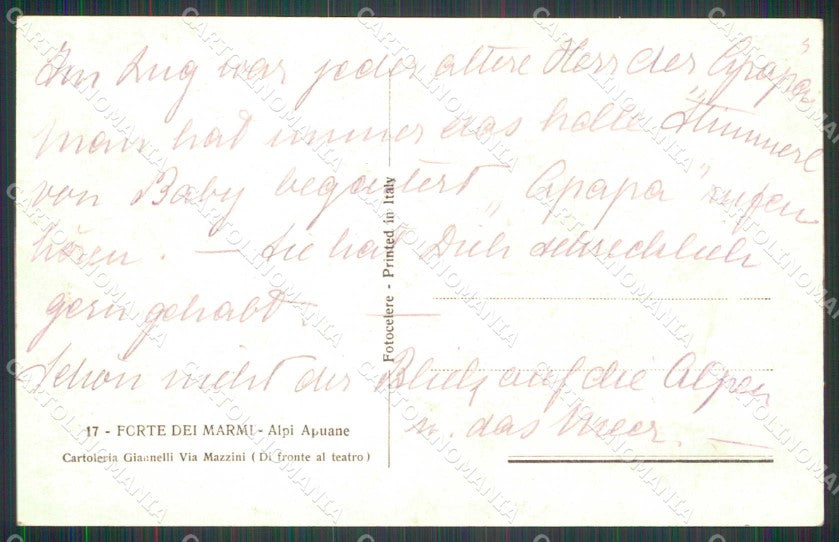 3
Im Zug war jeder ältere Herr der „Apapa"
man hat immer das helle Stimmerl
von Baby begeistert „Apapa" rufen
hören. — Sie hat Dich schrecklich
gern gehabt —
Schön nicht der Blick auf die Alpen
u. das Meer. —
Fotocelere - Printed in Italy
17 - FORTE DEI MARMI - Alpi Apuane
Cartoleria Giannelli Via Mazzini ( Di fronte al teatro )
CARTOLINOMANIA